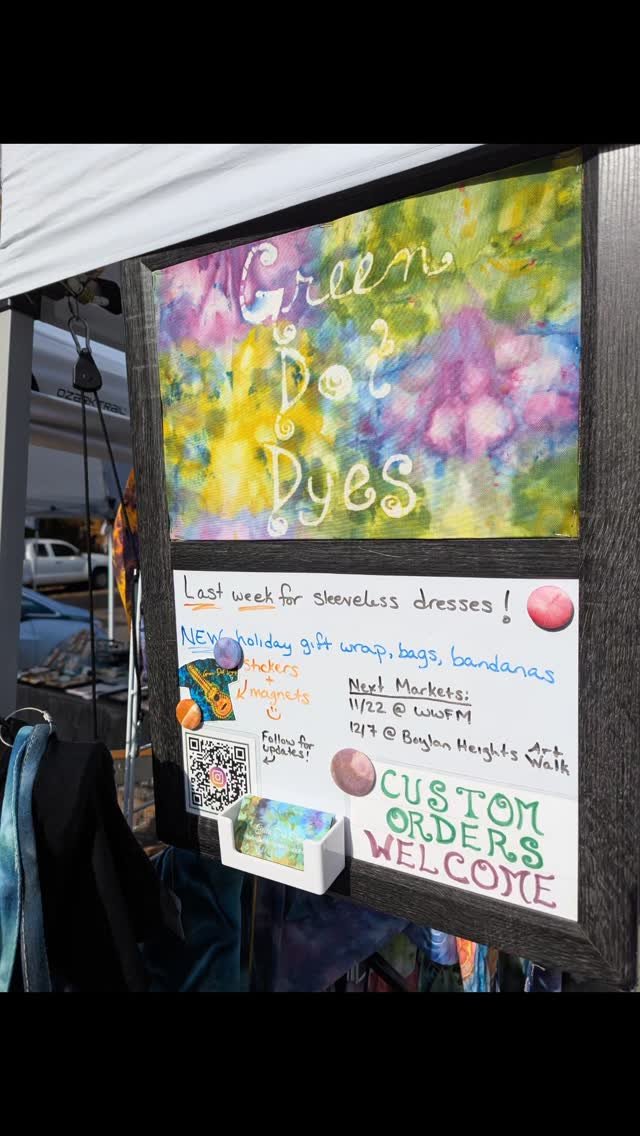 Green
Dot
Dyes
OZARK TRAIL
Last week for sleeveless dresses!
NEW holiday gift wrap, bags, bandanas
stickers
+
magnets
Next Markets:
11/22 @ WWFM
12/7 @ Boylan Heights Art
Walk
Follow for
updates!
CUSTOM
ORDERS
WELCOME